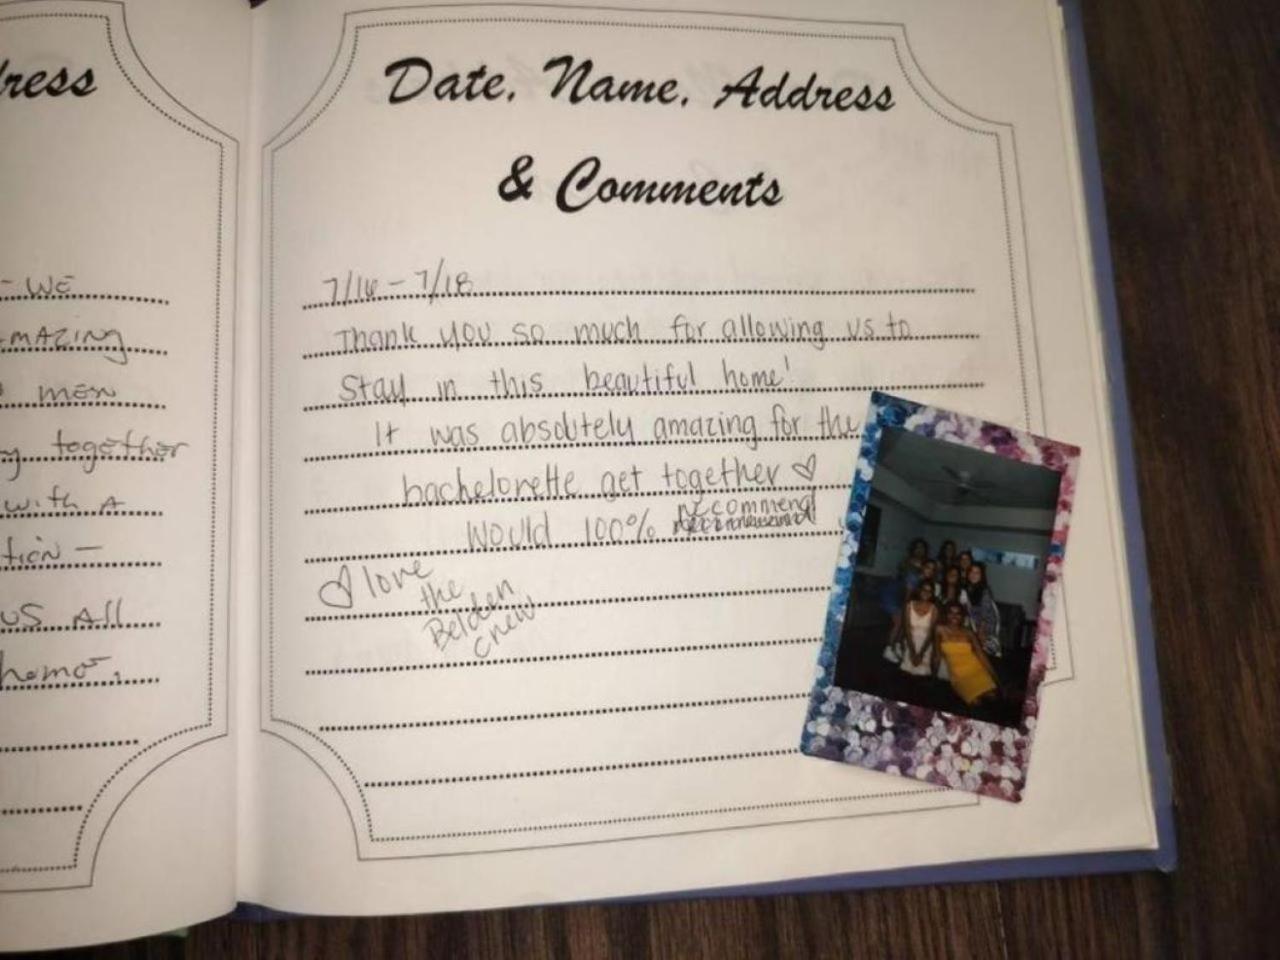 ress
- WE
MAZING
men
y together
with A
tion -
US All
home.
Date, Name, Address
& Comments
7/16 - 7/18
Thank you so much for allowing us to
Stay in this beautiful home!
It was absolutely amazing for the
bachelorette get together ♡
Would 100% recommend
♡ love
the
Belden
crew